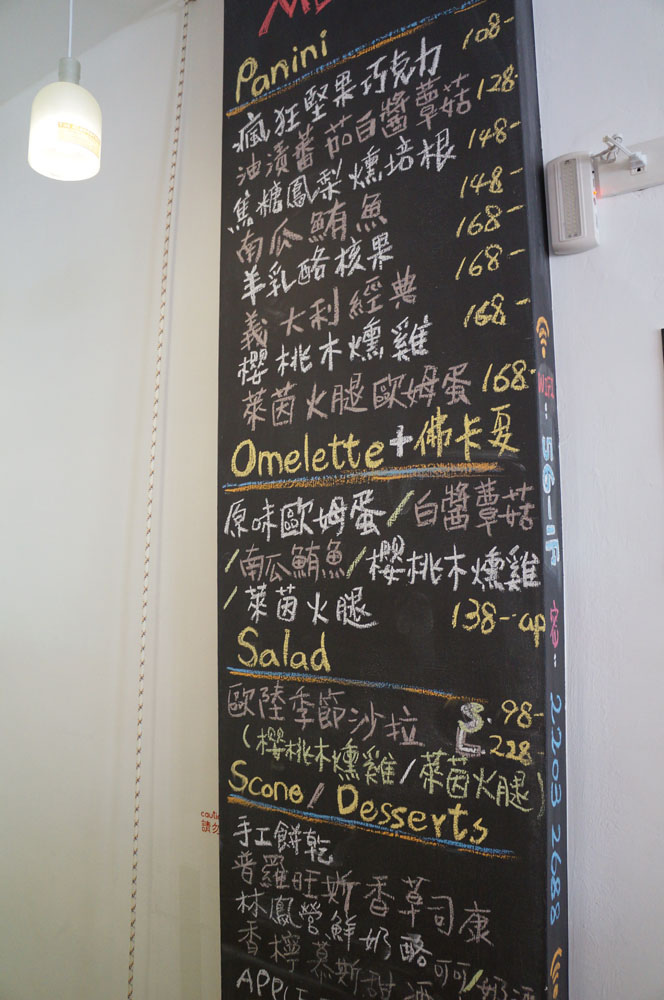 Panini
瘋狂堅果巧克力 108-
油漬蕃茄白醬蕈菇 128-
焦糖鳳梨燻培根 148-
南瓜鮪魚 148-
羊乳酪核果 168-
義大利經典 168-
櫻桃木燻雞 168-
萊茵火腿歐姆蛋 168-
Omelette+佛卡夏
原味歐姆蛋/白醬蕈菇
/南瓜鮪魚/櫻桃木燻雞
/萊茵火腿 138-up
Salad
歐陸季節沙拉 S. 98-
L. 228-
(櫻桃木燻雞/萊茵火腿)
Scone/Desserts
手工餅乾
普羅旺斯香草司康
林鳳營鮮奶酪
香檸慕斯甜酒 可可/奶酒
2203 2688
請勿